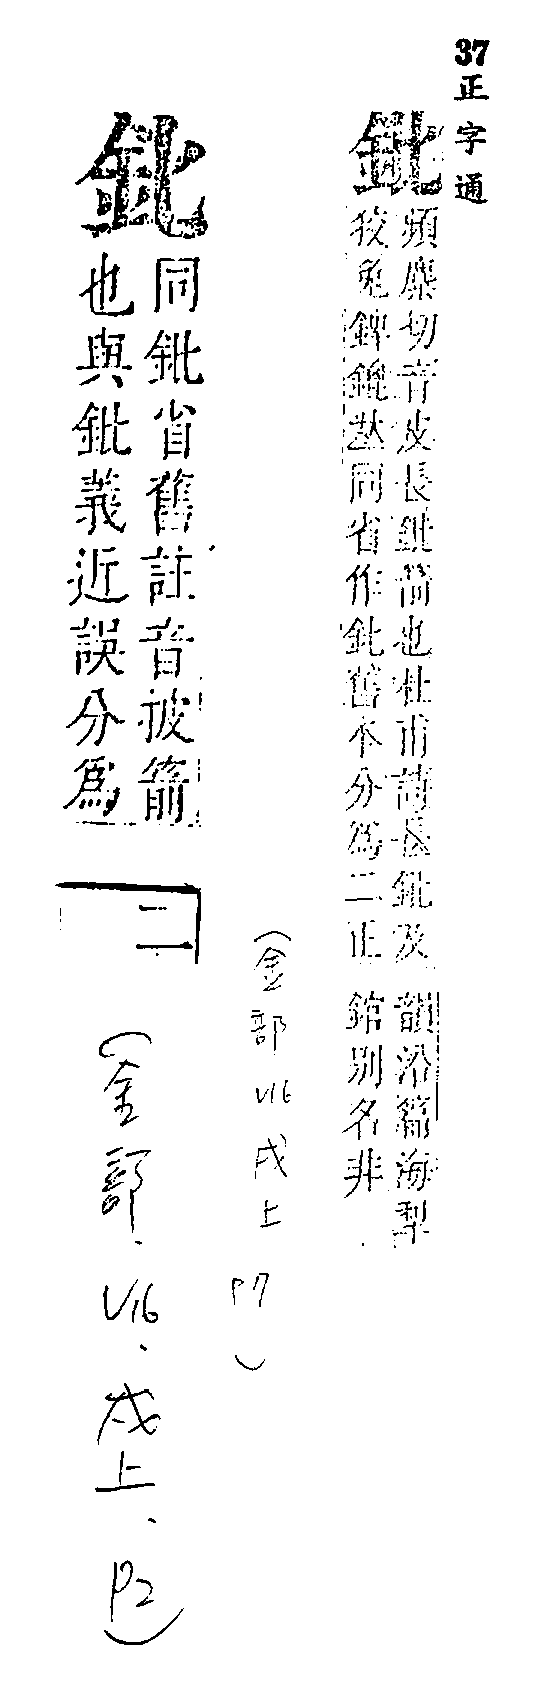 37正字通
鈚
頻麋切音皮長鈚箭也杜甫詩長鈚及
狡兔錍鎞𠀤同省作舊本分爲二正
韻沿篇海犁
錧別名非
(金部 V16 戌上 P7)
同鈚省舊註音披箭
也與鈚義近誤分爲
二
(金部、V16、戌上、P2)